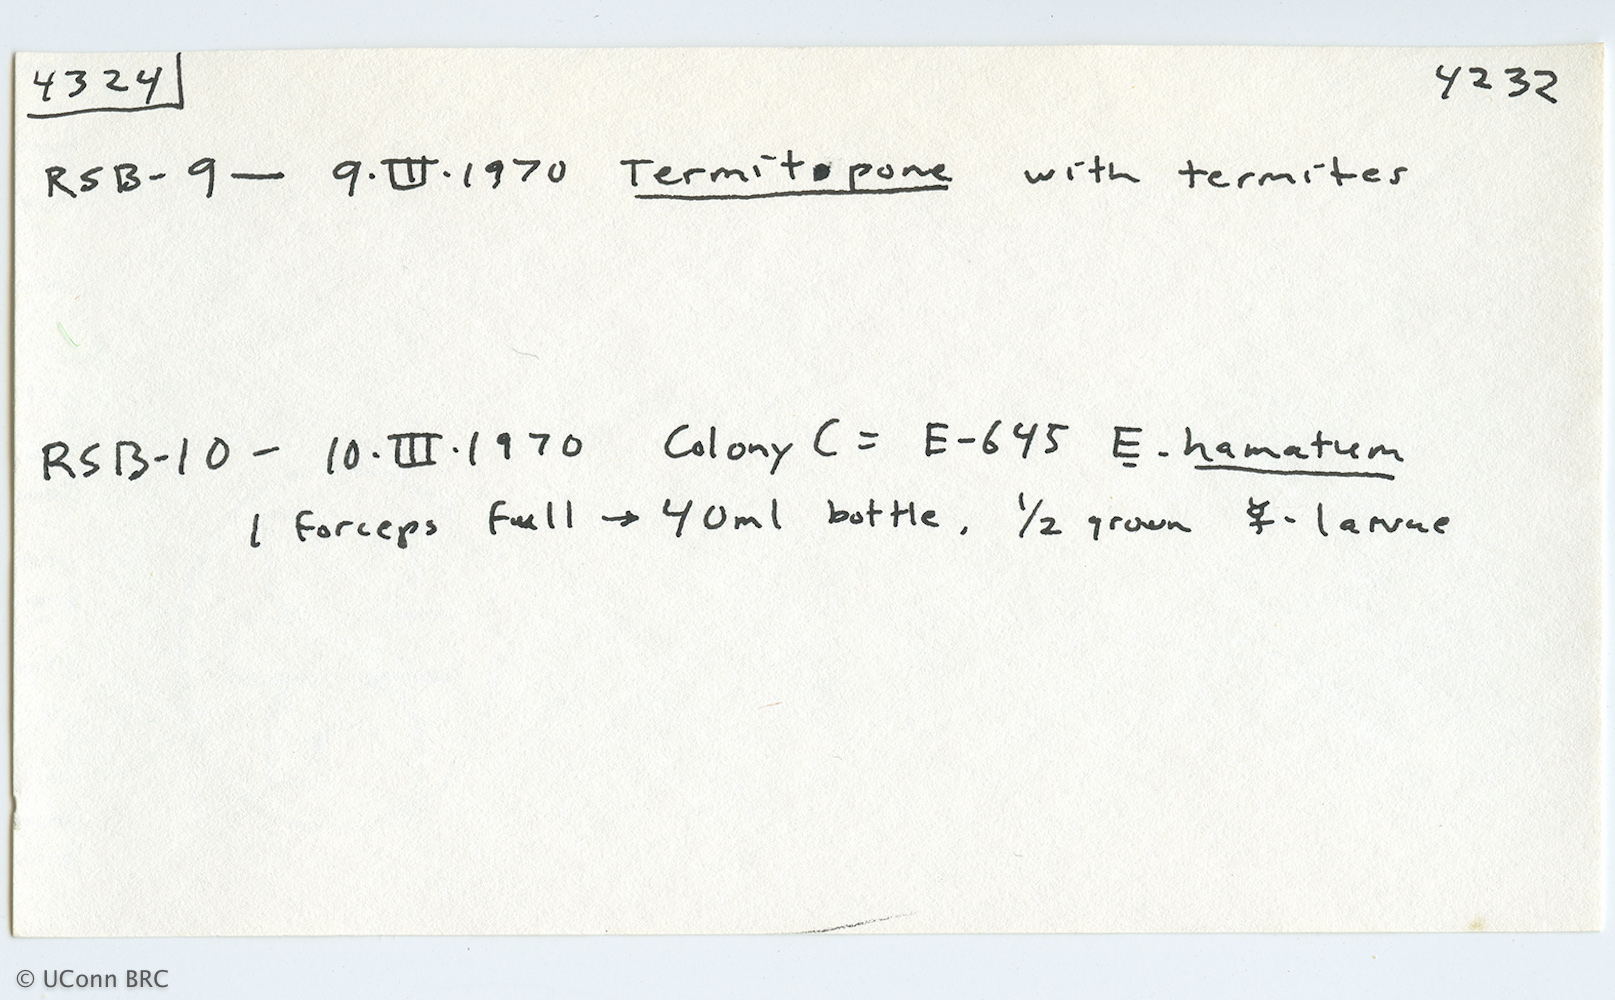 4324 4232
RSB-9 — 9.III.1970 Termitopone with termites
RSB-10 - 10.III.1970 Colony C = E-645 E. hamatum
1 Forceps full → 40ml bottle, 1/2 grown ☿- larvae
© UConn BRC